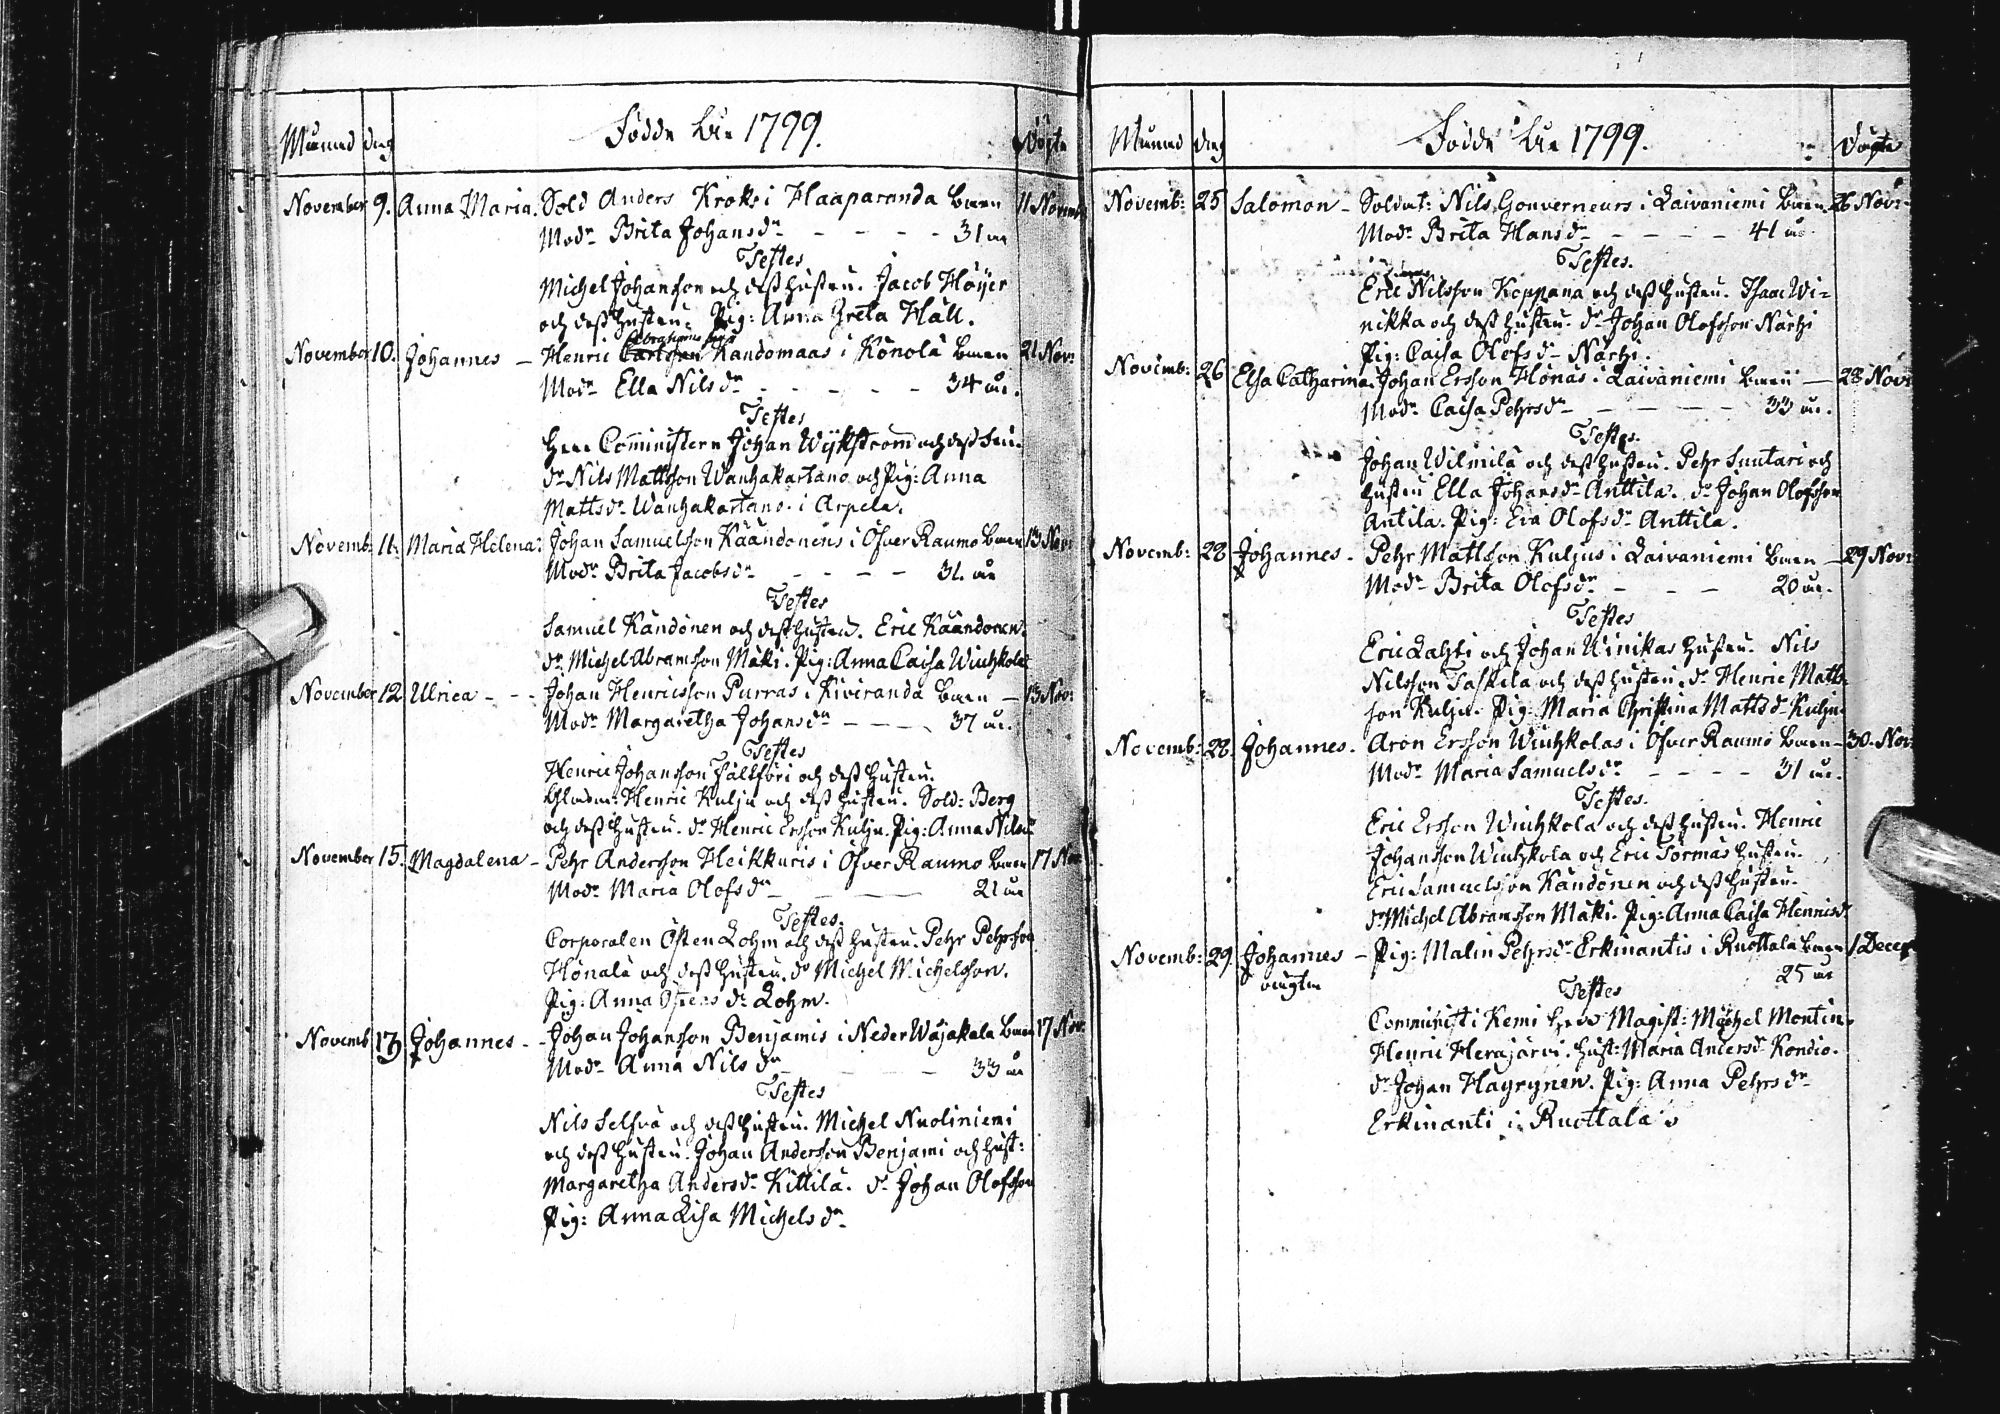 Månad dag Födde År 1799. Döpte
November 9. Anna Maria. Sold Anders Kroks i Haaparanda Barn 11 Novemb:
Modr Brita Johansdr - - - - 31 år
Testes
Michel Johansson och dess hustru. Jacob Höijer
och dess hustru. Pig: Anna Greta Häll.
November 10. Johannes - Henric Carlsson Kandomaas i Könölä Barn 21 Nov:
Modr Ella Nilsdr - - - - - 34 år.
Testes
Herr Comministern Johan Wijkström och dess fru.
dr Nils Mattsson Wanhakartano och Pig: Anna
Mattsdr Wanhakartano i Arpela.
Novemb: 11. Maria Helena: Johan Samuelsson Käändönens i Öfver Raumo Barn 13 Nov:
Modr Brita Jacobsdr - - - - 31. år
Testes
Samuel Kändönen och dess hustru. Eric Käändönen.
dr Michel Abramsson Mäki. Pig: Anna Caisa Wiuhkola
November 12 Ulrica - - - Johan Henricsson Purras i Kiviranda Barn - 13 Nov:
Modr Margaretha Johansdr - - - - 37 år.
Testes
Henric Johansson Fältföri och dess hustru.
Henric Kulju och dess hustru. Sold: Berg
och dess hustru. dr Henric Ersson Kulju. Pig: Anna Nilsdr
November 15. Magdalena - Pehr Andersson Heikkuris i Öfver Raumo Barn 17 Nov
Modr Maria Olofsdr - - - 21 år
Testes.
Corporalen Östen Lohm och dess hustru. Pehr Pehrsson
Hönälä och dess hustru. dr Michel Michelsson.
Pig: Anna Östens dr Lohm.
Novemb 13 Johannes - - Johan Johansson Benjamis i Neder Wojakala Barn 17 Nov:
Modr Anna Nils dr - - - 33 år
Testes
Nils Selfvä och dess hustru. Michel Nuoliniemi
och dess hustru. Johan Andersson Benjami och hust:
Margaretha Andersdr Kittilä. dr Johan Olofsson
Pig: Anna Lisa Michels dr
Månad dag Födde År 1799. Döpte
Novemb: 25 Salomon - Soldat: Nils Gouverneurs i Laivaniemi Barn 26 Nov:
Modr Brita Hansdr - - - - - 41 år.
Testes.
Eric Nilsson Koppana och dess hustru. Isaac Wi=
nikka och dess hustru. dr Johan Olofsson Närhi
Pig: Caisa Olofs dr Närhi.
Novemb: 26 Elsa Catharina. Johan Ersson Hönäs i Laivaniemi Barn - 28 Nov:
Modr Caisa Pehrsdr - - - - - 33 år.
Testes.
Johan Wilmilä och dess hustru. Pehr Suntari och
hustru Ella Johansdr Anttila. dr Johan Olofsson
Antila. Pig: Eva Olofsdr Anttila.
Novemb: 28 Johannes - Pehr Mattsson Kuljus i Laivaniemi Barn - 29 Nov:
Modr Brita Olofsdr - - - 20 år.
Testes
Eric Lahti och Johan Winikas hustru. Nils
Nilsson Taskila och dess hustru. dr Henric Matts
son Kulju. Pig: Maria Christina Mattsdr Kulju
Novemb: 28. Johannes. Aron Ersson Wiuhkolas i Öfver Raumo Barn - 30. Nov:
Modr Maria Samuelsdr - - - - 31 år.
Testes.
Eric Ersson Wiuhkola och dess hustru. Henric
Johansson Wiuhkola och Eric Törmäs hustru.
Eric Samuelsson Kändönen och dess hustru.
dr Michel Abramsson Mäki. Pig: Anna Caisa Henricsdr
Novemb: 29 Johannes - Pig: Malin Pehrsdr Erkinantis i Ruottala Barn 1 Decer
oägta 25 år
Testes
Comminist i Kemi Herr Magist: Michel Montin.
Henric Herajärvi. hust: Maria Andersdr Kondio.
dr Johan Häyrynen. Pig: Anna Pehrs dr
Erkinanti i Ruottala